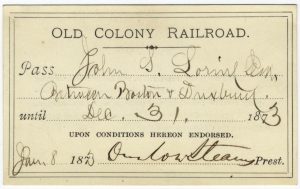 OLD COLONY RAILROAD.
Pass John S. Loring Esq.
Between Boston & Duxbury
until Dec. 31. 1873
UPON CONDITIONS HEREON ENDORSED.
Jan 8 1873 Onslow Stearns Prest.